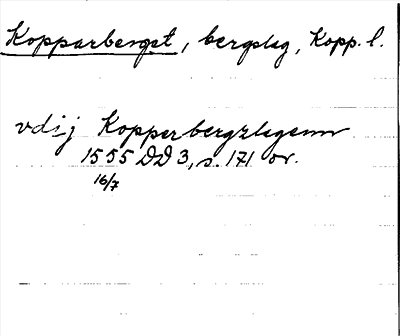 Kopparberget, bergslag, Kopp. l.
vdij Kopperbergzlagenn
1555 DD 3, s. 171 or.
16/7